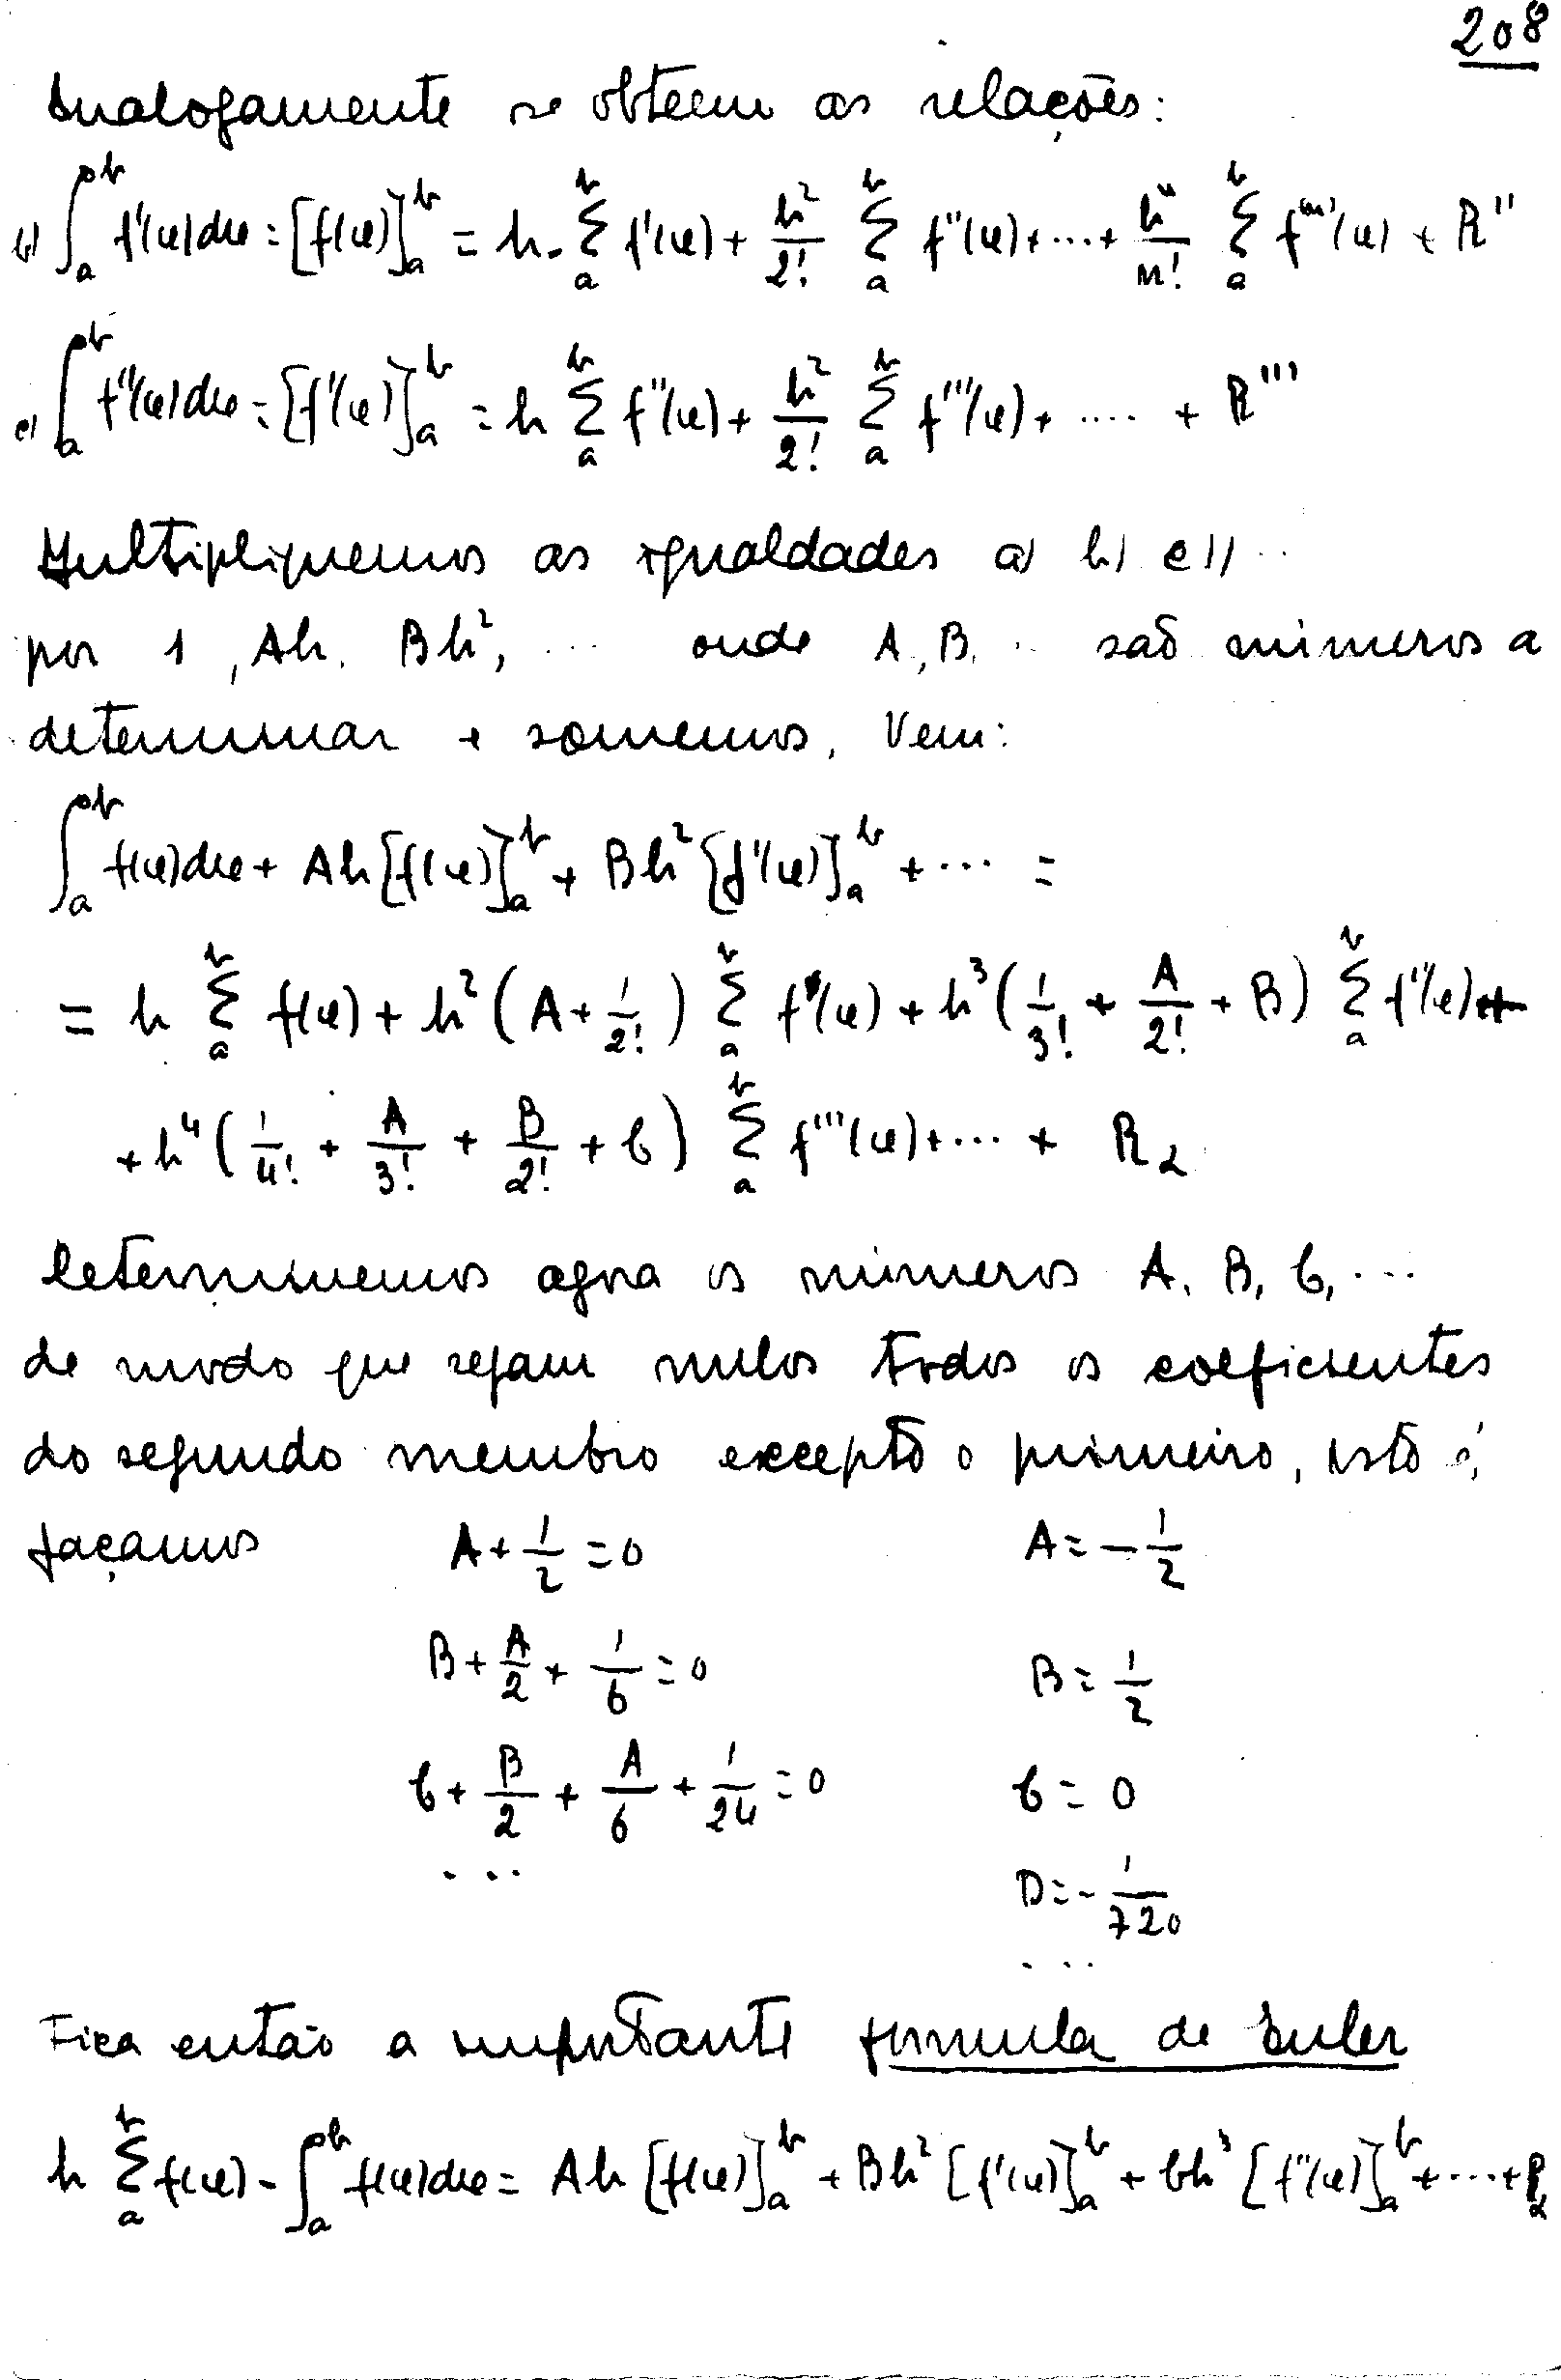 208
Analogamente se obteem as relações:
b) ∫_a^b f'(x)dx = [f(x)]_a^b = h. Σ_a^b f'(x) + h²/2! Σ_a^b f''(x) + ... + hⁿ/n! Σ_a^b f⁽ⁿ⁾(x) + R''
c) ∫_a^b f''(x)dx = [f'(x)]_a^b = h Σ_a^b f''(x) + h²/2! Σ_a^b f'''(x) + .... + R'''
Multipliquemos as igualdades a) b) c)) ..
por 1, Ah, Bh², ... onde A, B, .. são números a
determinar e somemos. Vem:
∫_a^b f(x)dx + Ah [f(x)]_a^b + Bh² [f'(x)]_a^b + ... =
= h Σ_a^b f(x) + h² (A + 1/2!) Σ_a^b f'(x) + h³ (1/3! + A/2! + B) Σ_a^b f''(x) +
+ h⁴ (1/4! + A/3! + B/2! + C) Σ_a^b f'''(x) + ... + R₂
Determinemos agora os números A, B, C, ...
de modo que sejam nulos todos os coeficientes
do segundo membro excepto o primeiro, isto é,
façamos A + 1/2 = 0 A = - 1/2
B + A/2 + 1/6 = 0 B = 1/2
C + B/2 + A/6 + 1/24 = 0 C = 0
... D = - 1/720
...
Fica então a importante formula de Euler
h Σ_a^b f(x) - ∫_a^b f(x)dx = Ah [f(x)]_a^b + Bh² [f'(x)]_a^b + Ch³ [f''(x)]_a^b + ... + R₂